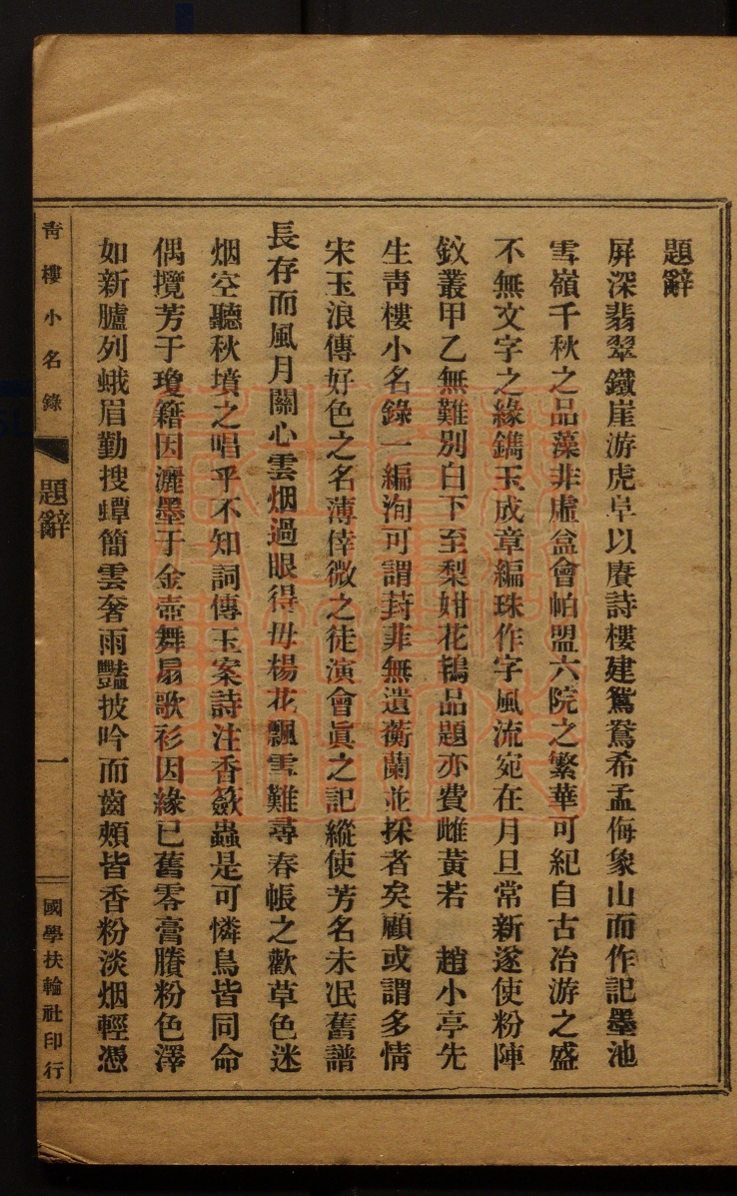 題辭
屏深翡翠鐵崖游虎阜以賡詩樓建鴛鴦希孟侮象山而作記墨池
雪嶺千秋之品藻非虛盒會帕盟六院之繁華可紀自古冶游之盛
不無文字之緣鐫玉成章編珠作字風流宛在月旦常新遂使粉陣
釵叢甲乙無難別白下至梨姏花鴇品題亦費雌黃若　趙小亭先
生靑樓小名錄一編洵可謂葑菲無遺蘅蘭並採者矣顧或謂多情
宋玉浪傳好色之名薄倖微之徒演會眞之記縱使芳名未泯舊譜
長存而風月關心雲烟過眼得毋楊花飄雪難尋春帳之歡草色迷
烟空聽秋墳之唱乎不知詞傳玉案詩注香籢蟲是可憐鳥皆同命
偶攬芳于瓊籍因灑墨于金壺舞扇歌衫因緣已舊零膏賸粉色澤
如新臚列蛾眉勤搜蟫簡雲奢雨豔披吟而齒頰皆香粉淡烟輕憑
靑樓小名錄
題辭
一
國學扶輪社印行